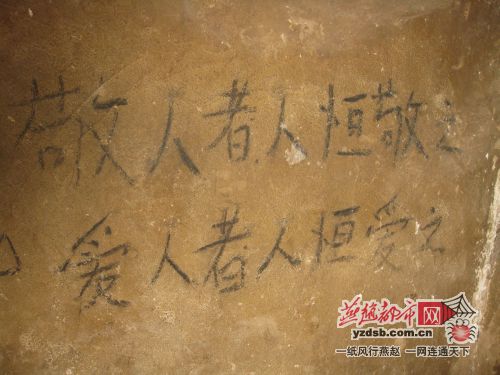 敬人者人恒敬之
爱人者人恒爱之
燕赵都市网
yzdsb.com.cn
一纸风行燕赵 一网连通天下